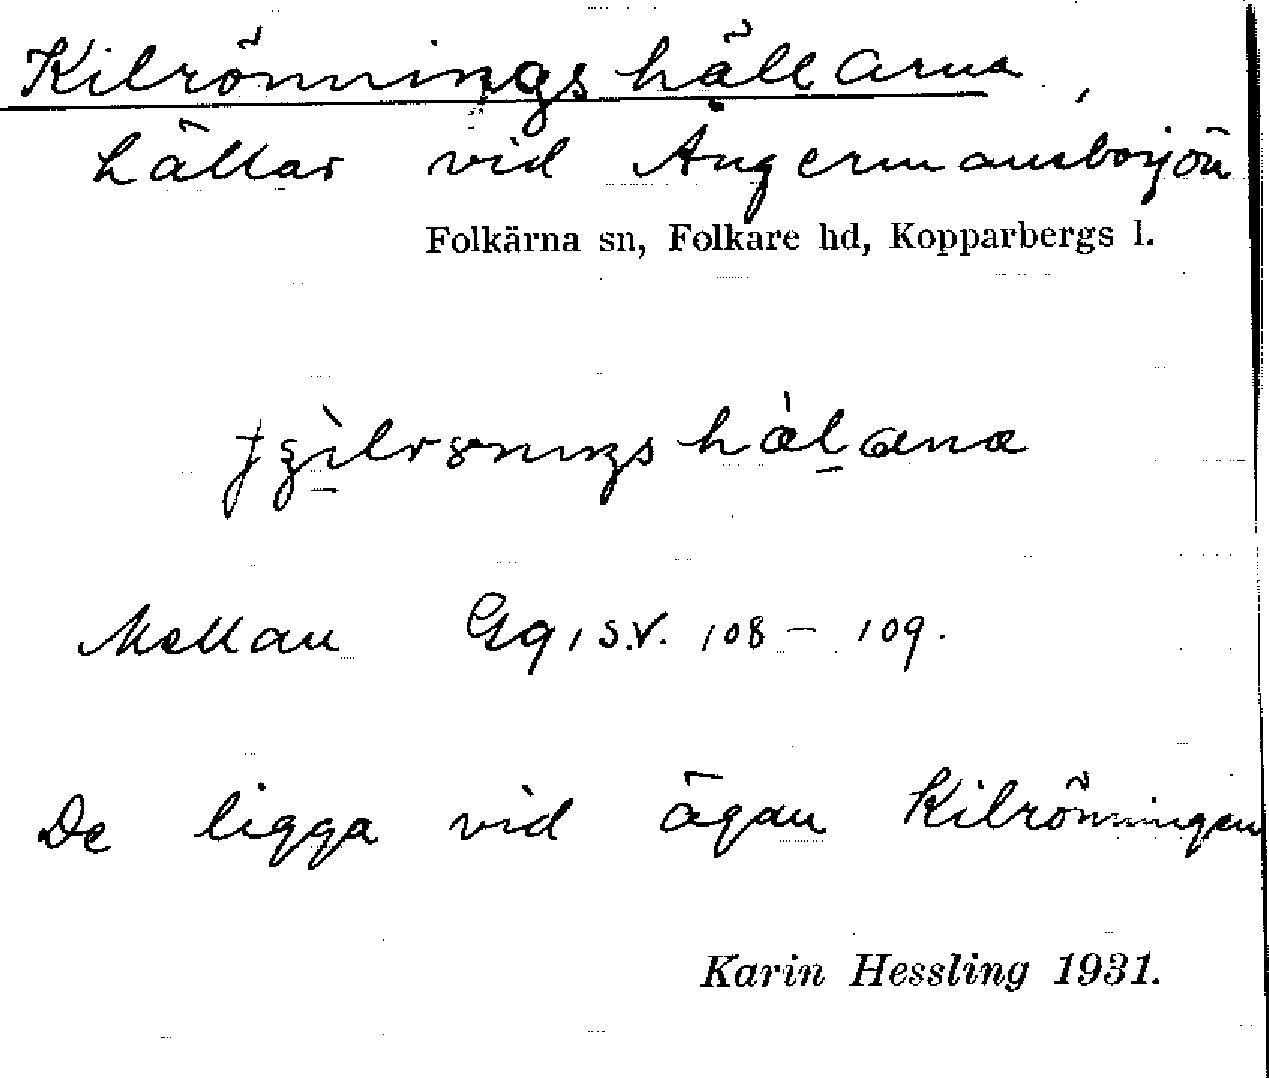 Kilrönningshällarna,
hällar vid Ångermansbosjön
Folkärna sn, Folkare hd, Kopparbergs l.
Mellan Gq, S.V. 108 – 109.
De ligga vid ägan Kilrönningen
Karin Hessling 1931.